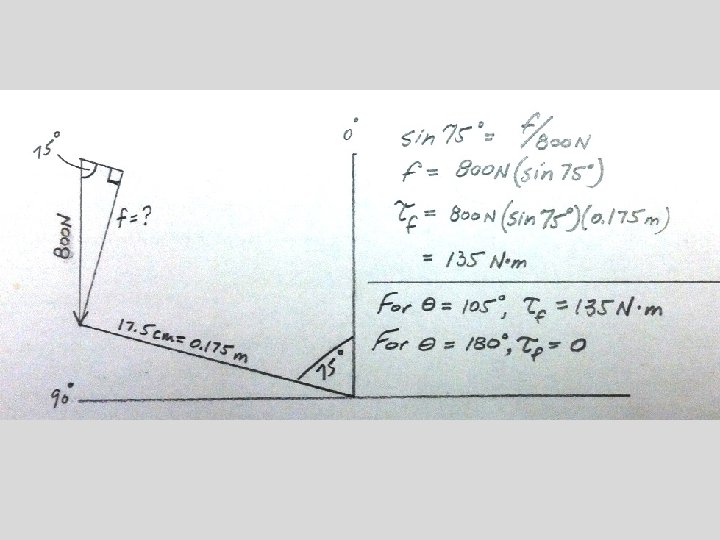 75°
800N
f=?
17.5cm=0.175m
90°
0°
75°
sin 75°= f/800N
f = 800N(sin 75°)
τf = 800N(sin 75°)(0.175m)
= 135 N·m
For θ = 105°, τf = 135 N·m
For θ = 180°, τf = 0